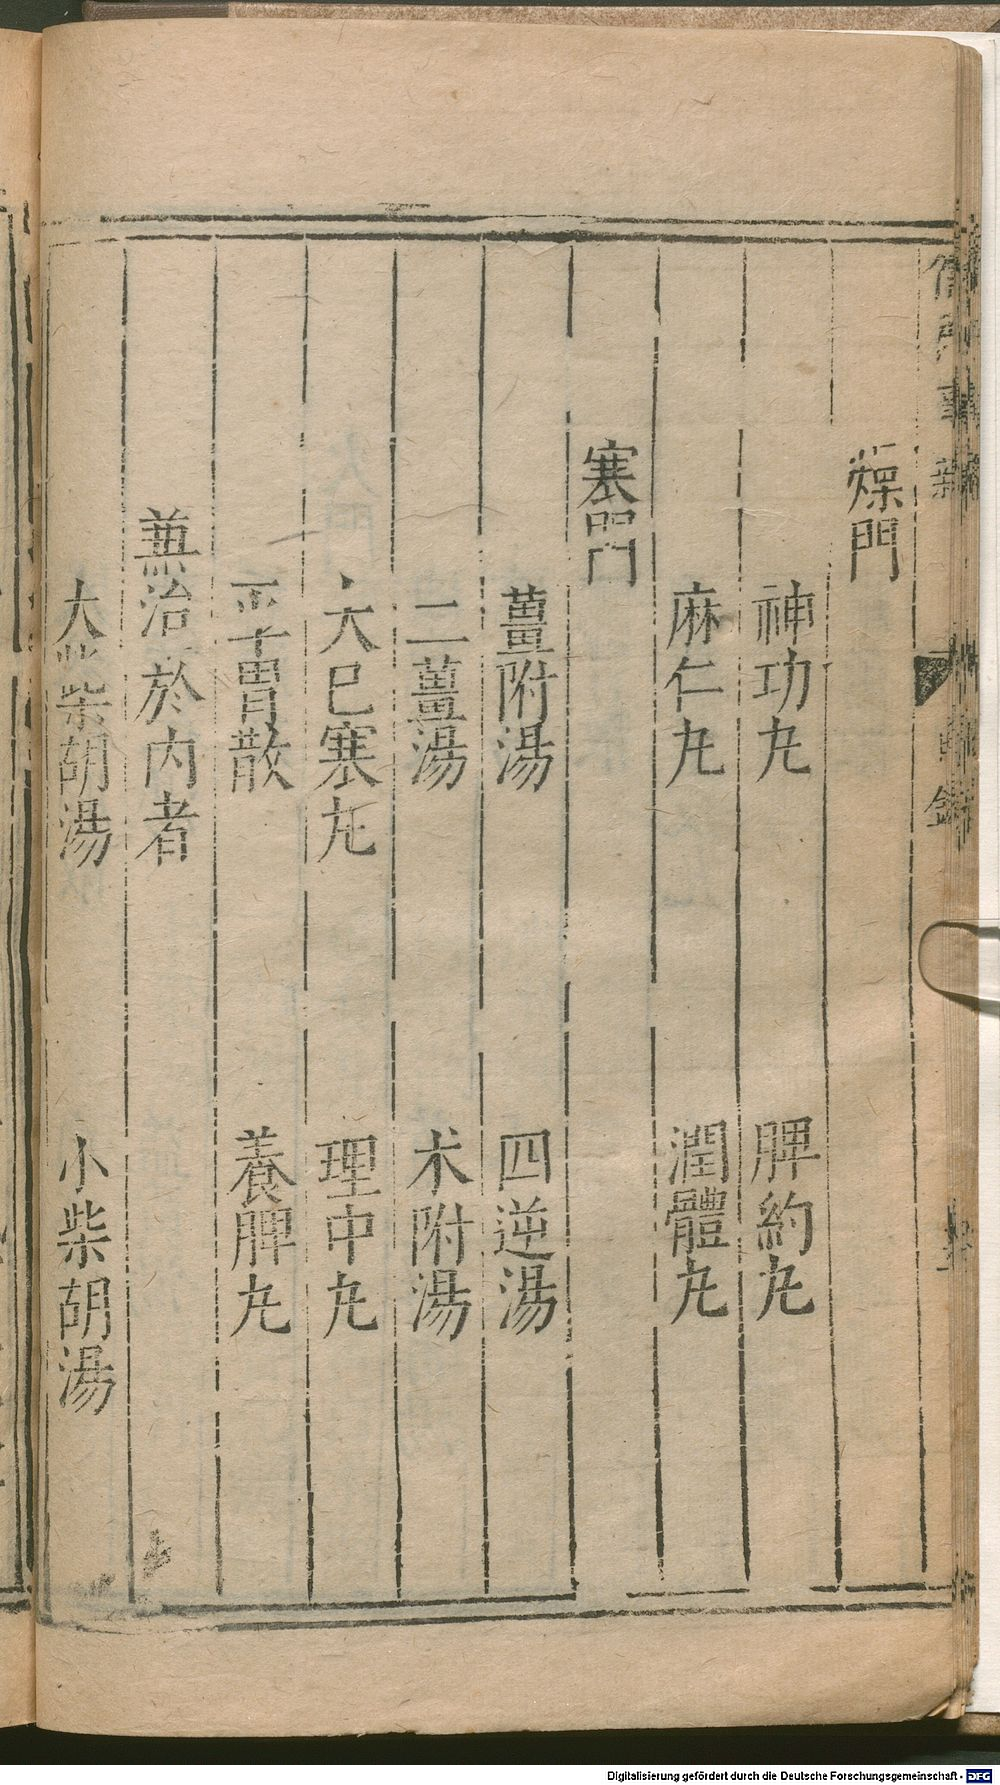 燥門
神功丸　脾約丸
麻仁丸　潤體丸
寒門
薑附湯　四逆湯
二薑湯　术附湯
大巳寒丸　理中丸
平胃散　養脾丸
兼治於內者
大柴胡湯　小柴胡湯
Digitalisierung gefördert durch die Deutsche Forschungsgemeinschaft - DFG